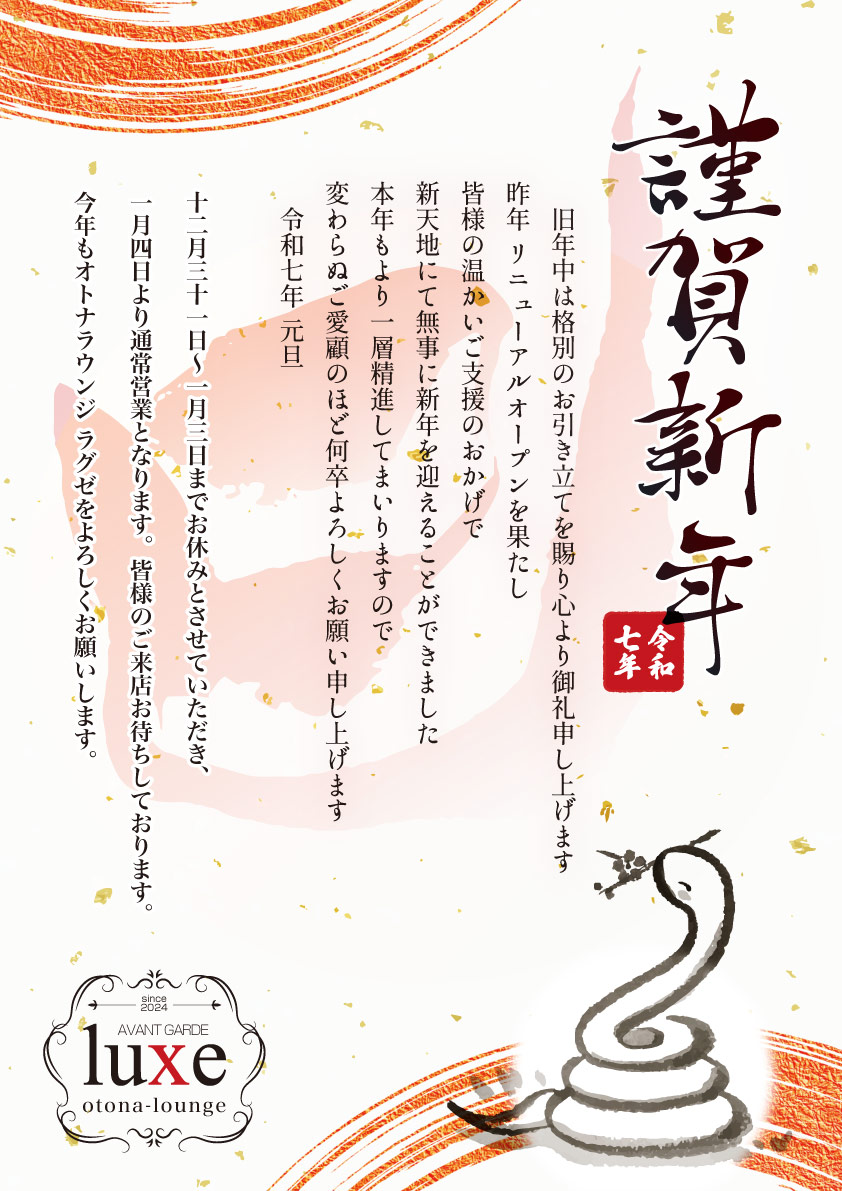 謹賀新年
令和
七年
旧年中は格別のお引き立てを賜り心より御礼申し上げます
昨年 リニューアルオープンを果たし
皆様の温かいご支援のおかげで
新天地にて無事に新年を迎えることができました
本年もより一層精進してまいりますので
変わらぬご愛顧のほど何卒よろしくお願い申し上げます
令和七年 元旦
十二月三十一日〜一月三日までお休みとさせていただき、
一月四日より通常営業となります。 皆様のご来店お待ちしております。
今年もオトナラウンジ ラグゼをよろしくお願いします。
since
2024
AVANT GARDE
luxe
otona-lounge